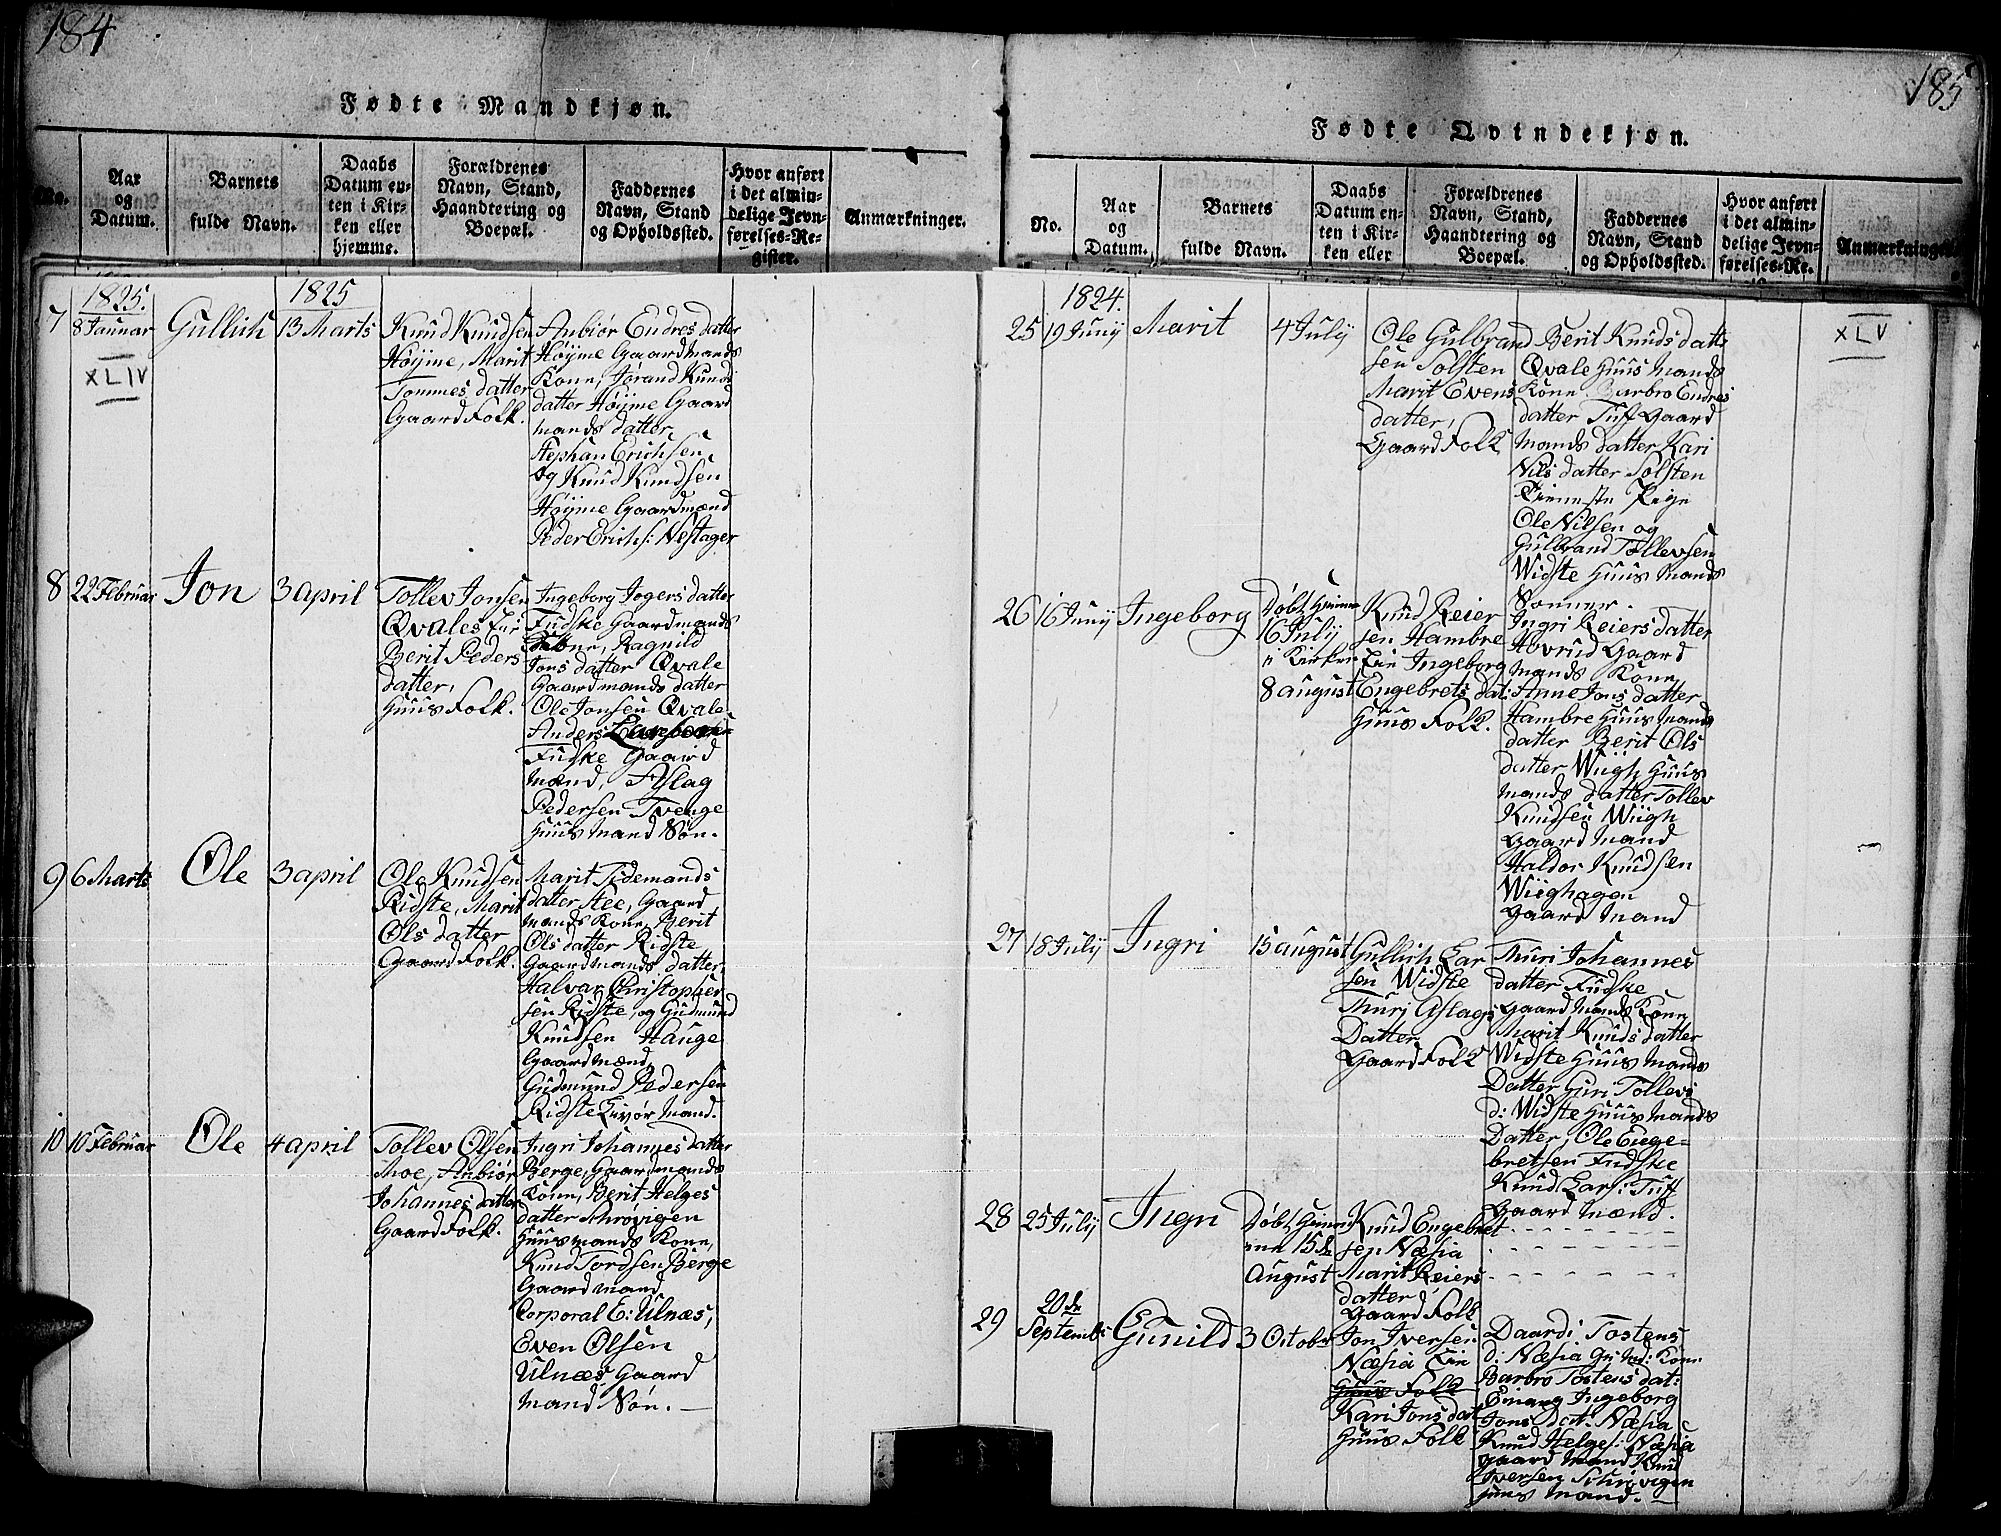 184
Fødte Mandkjøn.
No.
Aar
og
Datum.
Barnets
fulde Navn.
Daabs
Datum en-
ten i Kir-
ken eller
hjemme.
Forældrenes
Navn, Stand,
Haandtering og
Boepæl.
Faddernes
Navn, Stand
og Opholdssted.
Hvor anført
i det almin-
delige Jevn-
førelses-Re-
gister.
Anmærkninger.
1825.
1825
7
8 Januar
XLIV
Gullich
13 Marts
Knud Knudsen
Høyme, Marit
Tommes datter
Gaard Folk.
Anbiør Endres datter
Høyme Gaardmands
Kone, Jørand Knuds
datter Høyme Gaard
mands datter,
Stephan Erichsen
og Knud Knudsen
Høyme Gaardmænd
Peder Erichs: Nestager
8
22 Februar
Jon
3 april
Tollev Jonsen
Qvales Eur
Berit Peders
datter,
Huus Folk.
Ingeborg Jogers datter
Fudske Gaardmands
Kone, Ragnild
Jons datter Qvale
Gaardmands datter
Ole Jonsen Qvale
Anders
Fudske Gaard
mænd, Aslag
Pedersen Tvenge
Huus mand Søn.
9
6 Marts
Ole
3 april
Ole Knudsen
Ridste, Marit
Ols datter
Gaard Folk.
Marit Tidemands
datter Stee, Gaard
mands Kone, Berit
Ols datter Ridste
Gaardmands datter
Halvar Christopher
sen Ridste, og Gudmund
Knudsen Hauge
Gaardmænd,
Gudmund Pedersen
Ridste Livør Mand.
10
10 Februar
Ole
4 april
Tollev Olsen
Thoe, Anbiør
Johannes datter
Gaard Folk.
Ingri Johannes datter
Berge, Gaardmands
Kone, Berit Helges
datter Schrøvigen
Huusmands Kone,
Knud Tordsen Berge
Gaardmand
Corporal E: Ulnæs,
Even Olsen
Ulnæs Gaard
mand Søn.
185
Fødte Qvindekjøn.
No.
Aar
og
Datum.
Barnets
fulde Navn.
Daabs
Datum en-
ten i Kir-
ken eller
Forældrenes
Navn, Stand,
Haandtering og
Boepæl.
Faddernes
Navn, Stand
og Opholdssted.
Hvor anført
i det almin-
delige Jevn-
førelses-Re-
Anmærkninge
1824.
25
19 Juny
Marit
4 July
Ole Gulbrand
sen Solsten
Marit Evens
datter,
Gaard Folk
Berit Knuds datt
Qvale Huus mands
Kone Barbro Endres
datter Tuff Gaard
mands datter Kari
Nils datter Solsten
Tieneste Pige
Ole Nilsen og
Gulbrand Tollevsen
Widste Huus mands
Sønner.
XLV
26
16 Juny
Ingeborg
Døbt Hiemme
16 July
i Kirken
8 august
Knud Reier
sen Hambre
Eie Ingeborg
Engebrets dat:
Huus Folk.
Ingri Reiers datter
Hovrud Gaard
mands Kone
Anne Jons datter
Hambre Huus mands
datter Berit Ols
datter Wiigh Huus
mands datter Tollev
Knudsen Wiigh
Gaard mand
Haldor Knudsen
Wiighagen
Gaard mand
27
18 July
Ingri
15 august
Gullich Lar
sen Widste
Thuri Aslags
Datter
Gaard Folk
Thuri Johannes
datter Fudske
Gaard mands Kone
Marit Knuds datter
Widste Huus mands
Datter Guri Tollevs
d: Widste Huus mands
Datter, Ole Enge-
bretsen Fudske
Knud Lars: Tuff
Gaard mænd.
28
25 July
Ingri
Døbt Hiem
me 15de
August
Knud Engebret
sen Næsia
Marit Reiers
datter
Gaard Folk
29
20de
Septembr
Gunild
3 Octobr
Jon Iversen
Næsia Eie
Huus Folk
Kari Jons dat
Huus Folk
Daardi Tostens
d: Næsia Gr: md: Kone
Barbro Tostens dat:
Einang Ingeborg
Jons dat: Næsia
Knud Helges: Næsia
Gaard mand Knud
Iversen Schrøvigen
Huus mand.